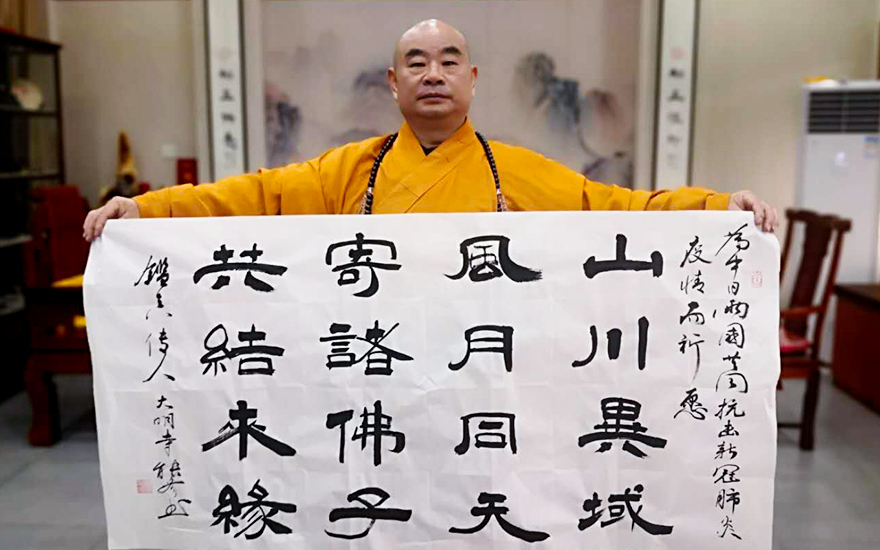 為中日兩國共同抗击新冠肺炎
疫情而祈愿
山川異域
風月同天
寄諸佛子
共結來緣
鑑真传人 大明寺能修书